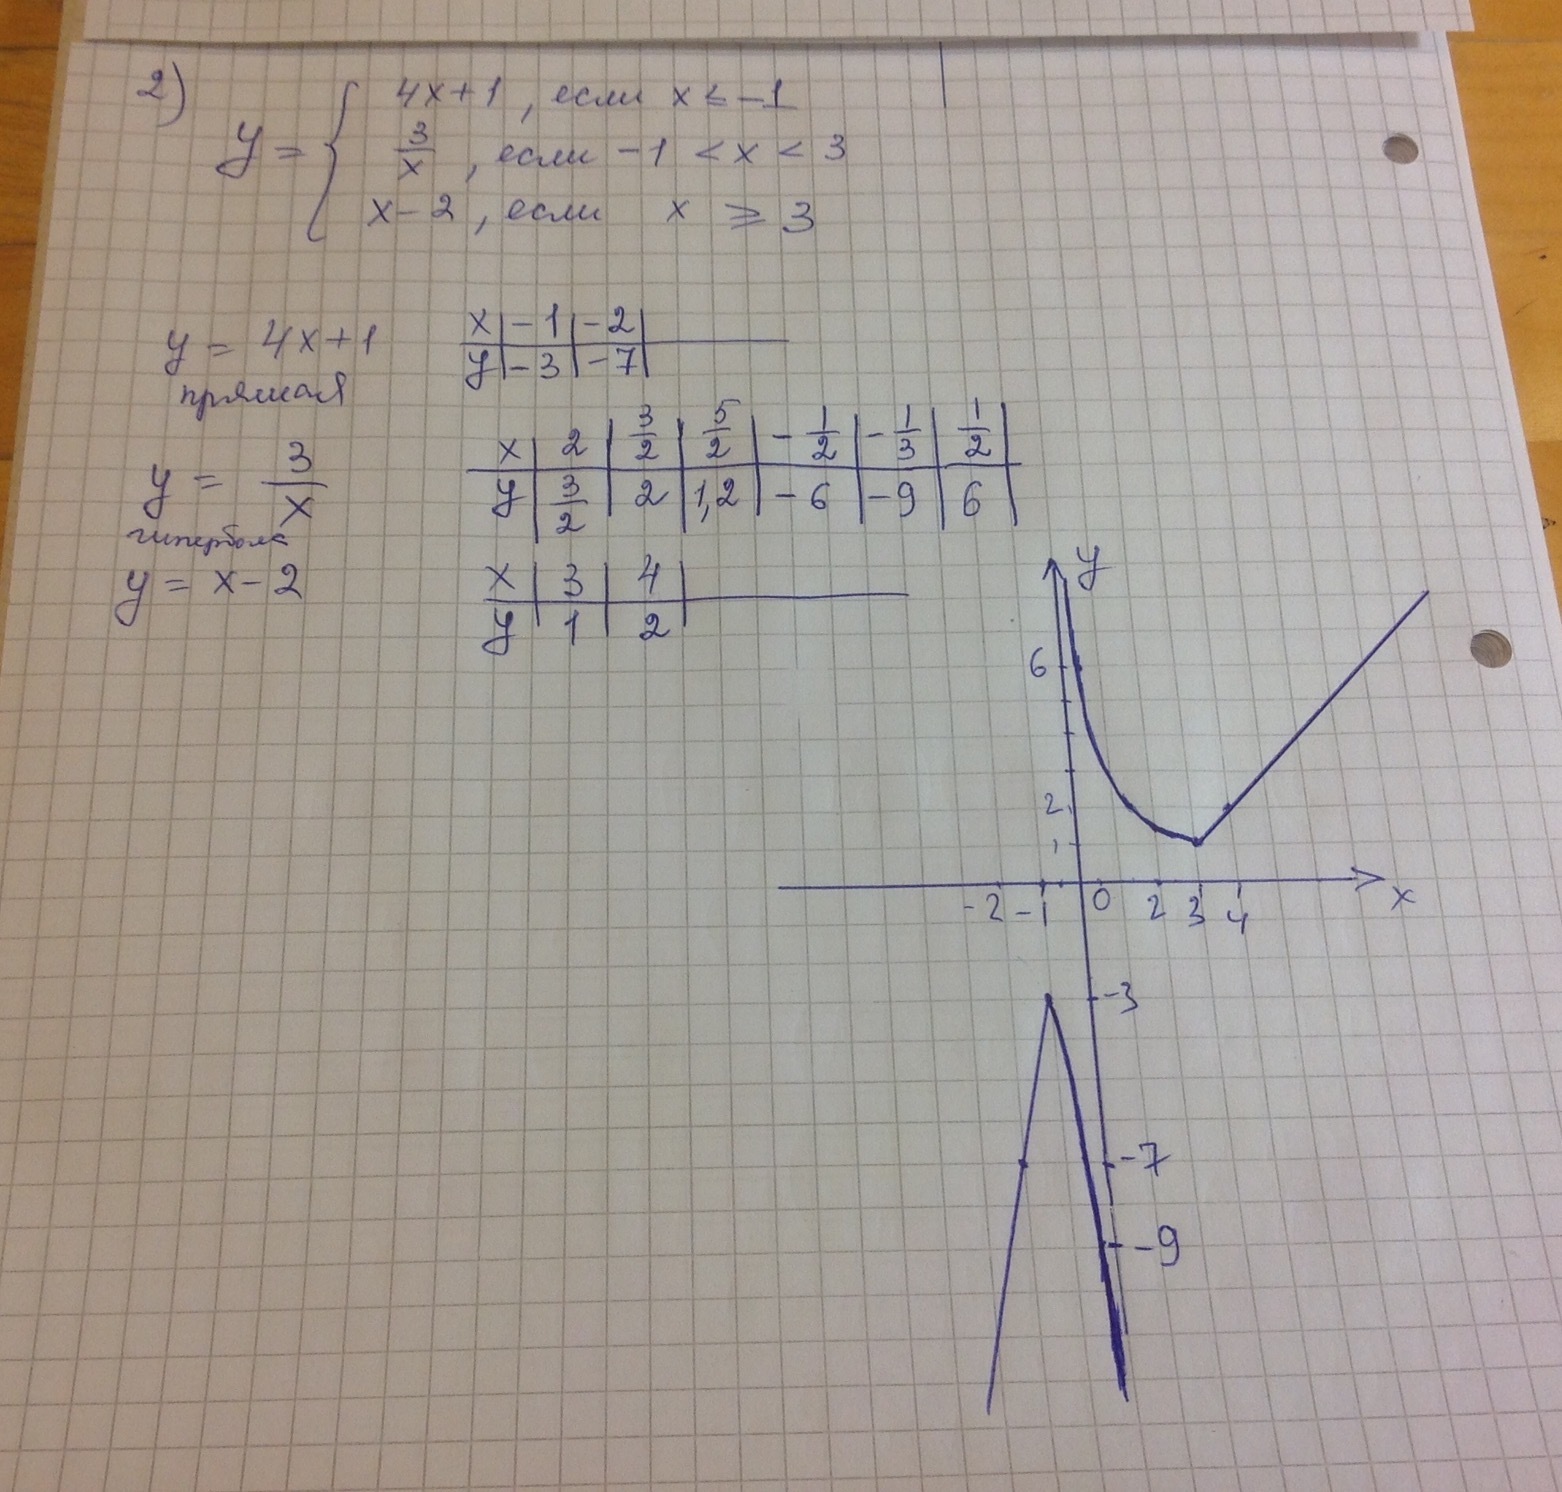 2)
y = { 4x+1, если x ≤ -1
3/x, если -1 < x < 3
x-2, если x ≥ 3
y = 4x+1
прямая
x | -1 | -2
y | -3 | -7
y = 3/x
гипербола
x | 2 | 3/2 | 5/2 | -1/2 | -1/3 | 1/2
y | 3/2 | 2 | 1,2 | -6 | -9 | 6
y = x-2
x | 3 | 4
y | 1 | 2
y
6
2
1
-2 -1 0 2 3 4 x
-3
-7
-9